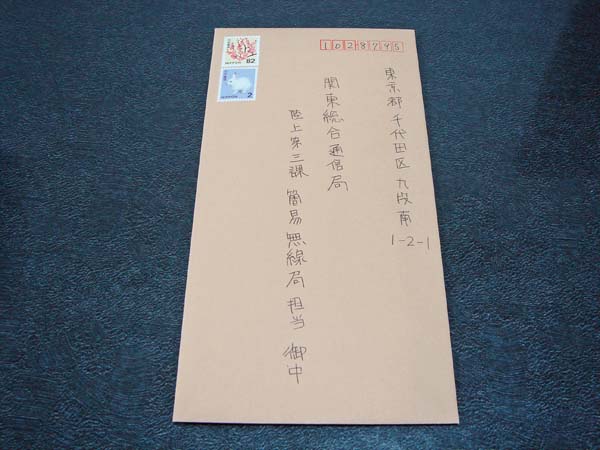 1028795
東京都千代田区九段南
1-2-1
関東総合通信局
陸上第三課 簡易無線局 担当 御中
82
NIPPON
2
NIPPON